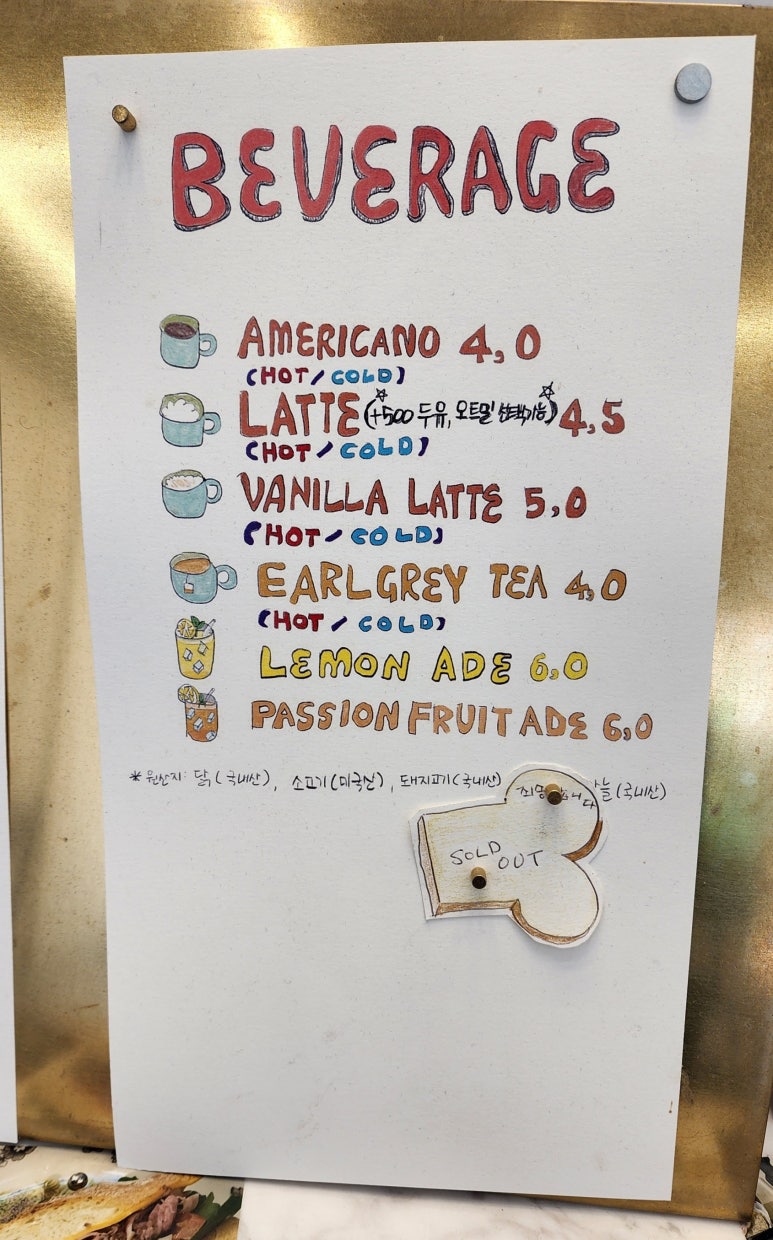 BEVERAGE
AMERICANO 4,0
(HOT/COLD)
LATTE (+500 두유, 오트밀 선택가능) 4,5
(HOT/COLD)
VANILLA LATTE 5,0
(HOT/COLD)
EARLGREY TEA 4,0
(HOT/COLD)
LEMON ADE 6,0
PASSION FRUIT ADE 6,0
* 원산지: 닭(국내산), 소고기(미국산), 돼지고기(국내산) (국내산)
SOLD OUT